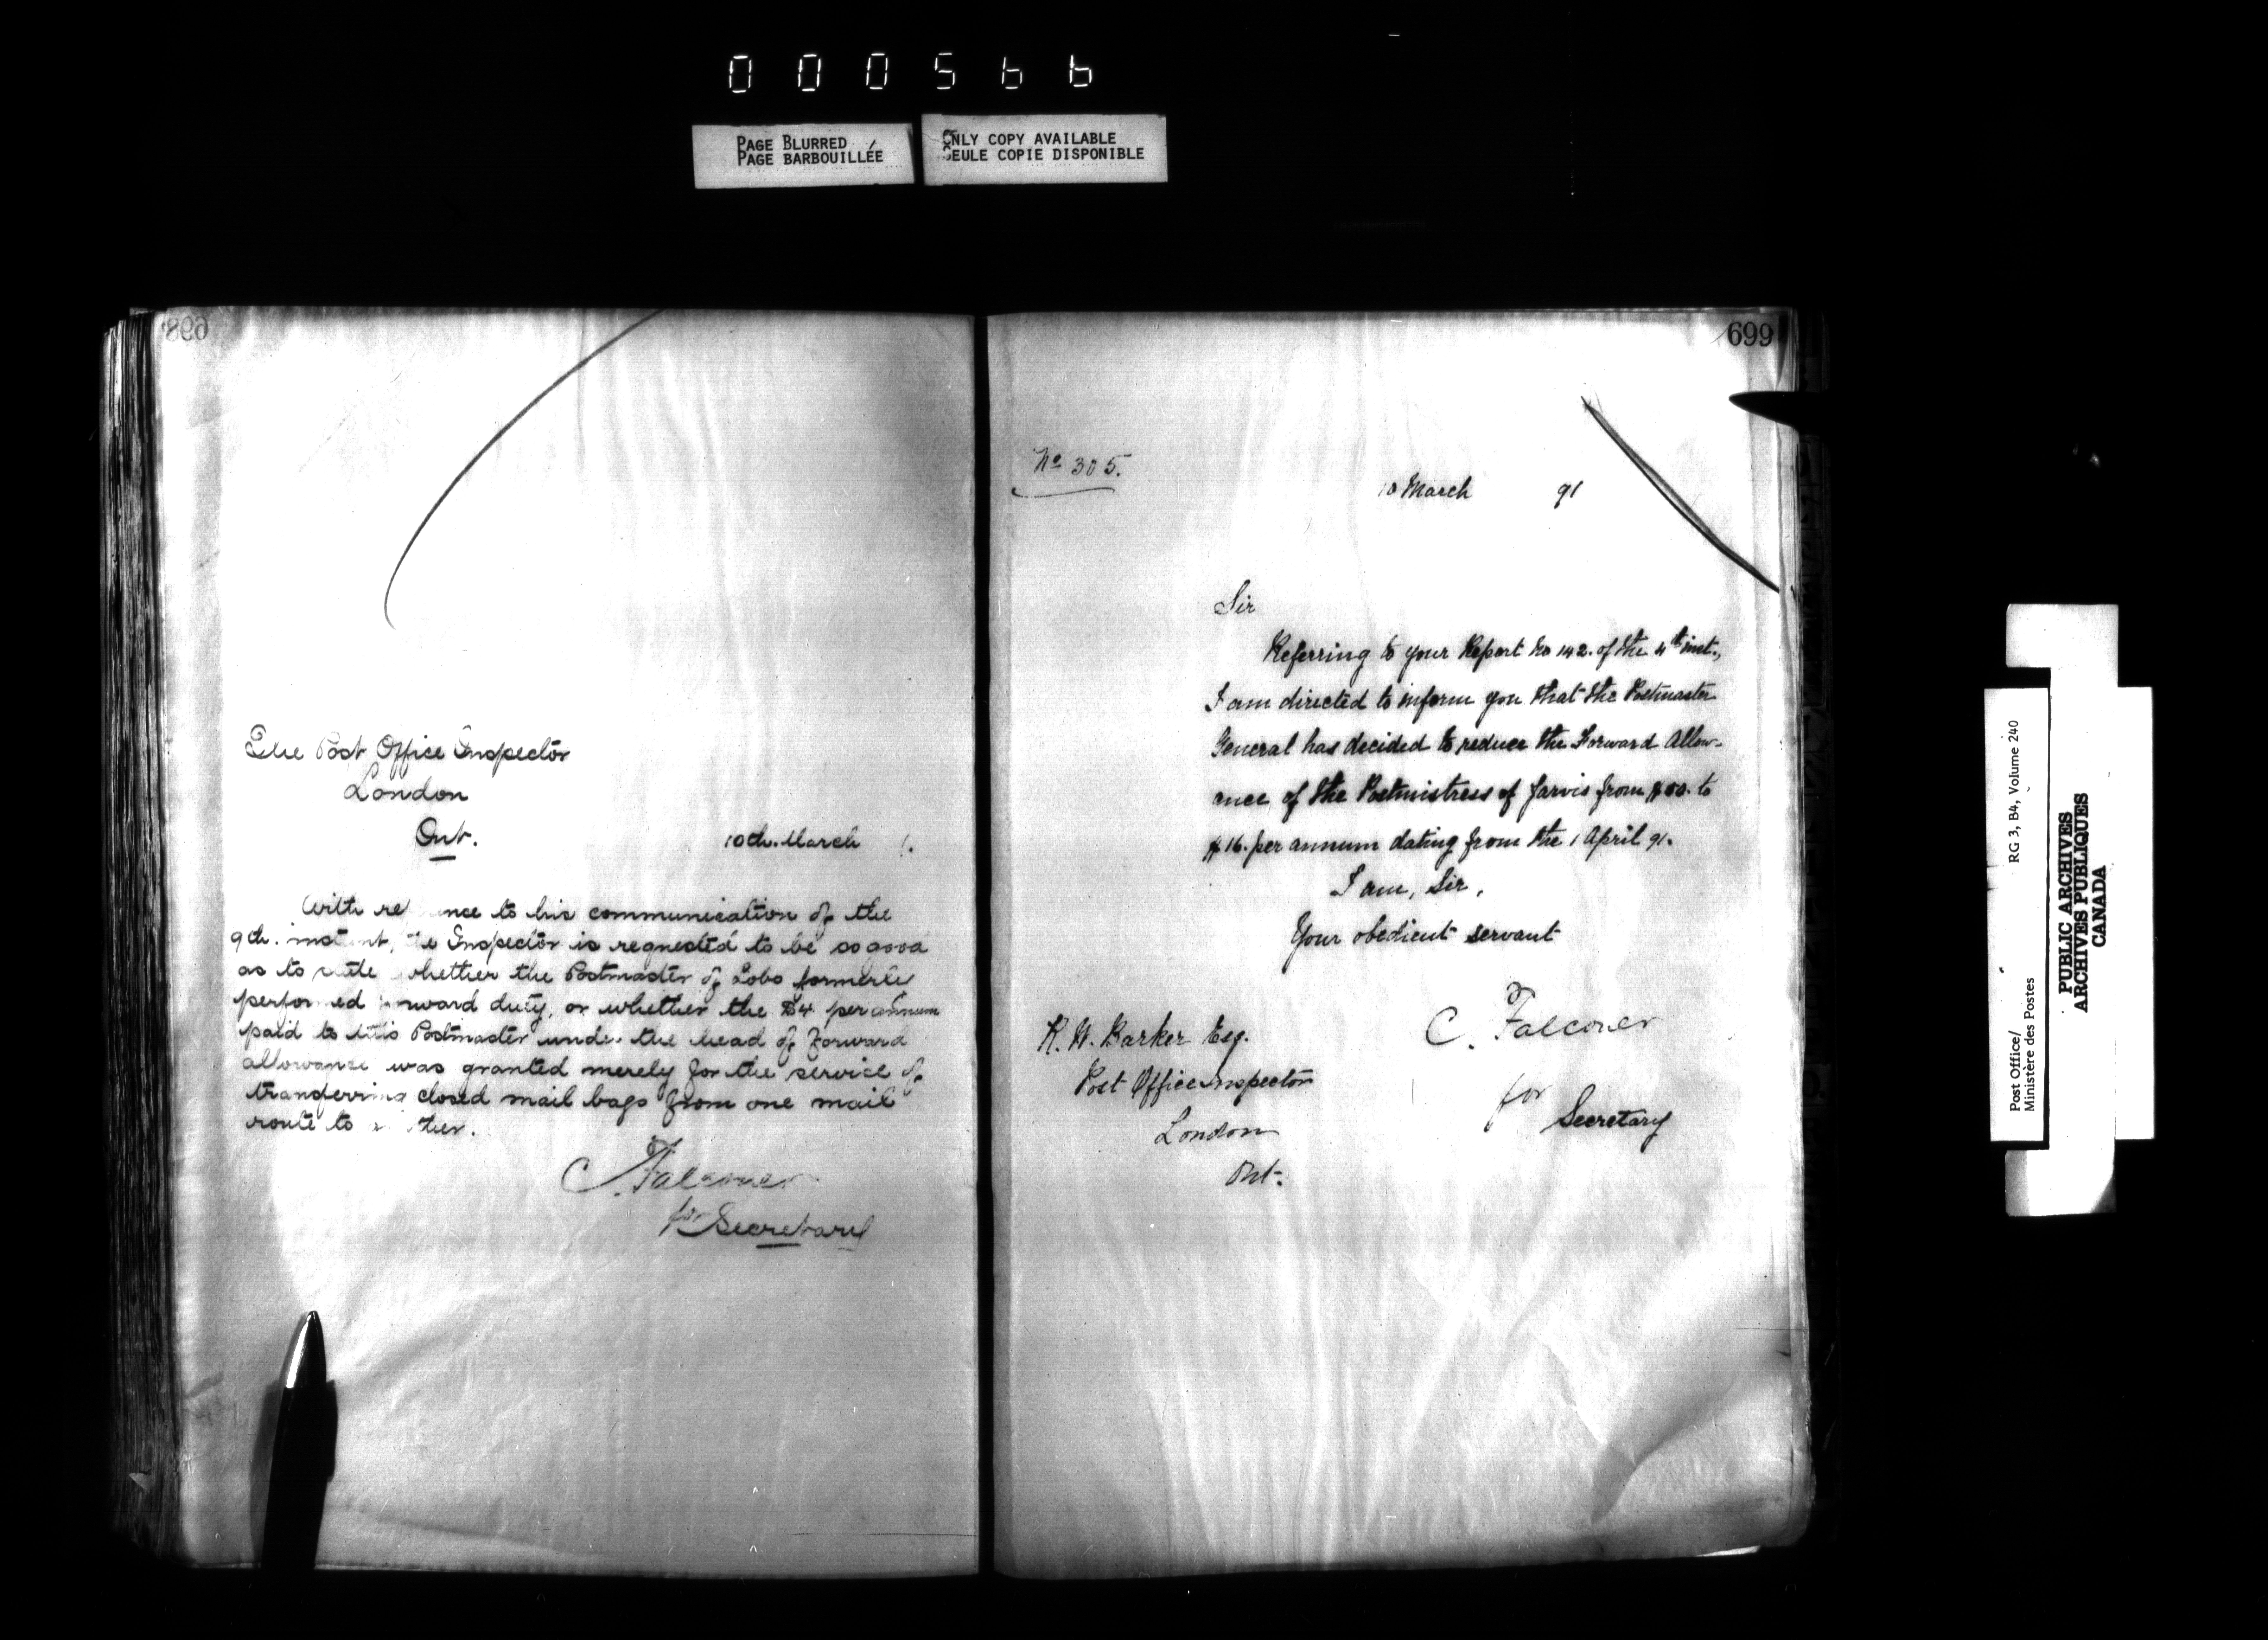 000566
PAGE BLURRED
PAGE BARBOUILLÉE
ONLY COPY AVAILABLE
SEULE COPIE DISPONIBLE
698
The Post Office Inspector
London
Ont.
10th. March 1.
With re ence to his communication of the
9th. instant, the Inspector is requested to be so good
as to state whether the Postmaster of Lobo formerly
performed forward duty, or whether the $4. per annum
paid to this Postmaster under the head of Forward
allowance was granted merely for the service of
transferring closed mail bags from one mail
route to a ther.
C. Falconer
for Secretary
699
No 305.
10 March 91
Sir
Referring to your Report No 142. of the 4th inst.,
I am directed to inform you that the Postmaster
General has decided to reduce the Forward Allow-
ance of the Postmistress of Jarvis from to
$16. per annum dating from the 1 April 91.
I am, Sir,
Your obedient servant
C. Falconer
for Secretary
R. W. Barker Esq.
Post Office Inspector
London
Ont.
Post Office/
Ministère des Postes
RG 3, B4, Volume 240
PUBLIC ARCHIVES
ARCHIVES PUBLIQUES
CANADA